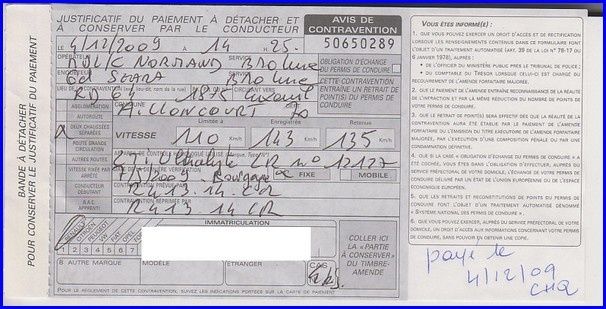 BANDE À DÉTACHER
POUR CONSERVER LE JUSTIFICATIF DU PAIEMENT
JUSTIFICATIF DU PAIEMENT À DÉTACHER ET
À CONSERVER PAR LE CONDUCTEUR
AVIS DE
CONTRAVENTION
LE 4/12/2009 À 14 H 25
50650289
OPÉRATEUR
SERVICE
OBLIGATION D'ÉCHANGE
DU PERMIS DE CONDUIRE
CETTE CONTRAVENTION
ENTRAÎNE UN RETRAIT
DE POINT(S) DU PERMIS
DE CONDUIRE
RD 64
AGGLOMÉRATION
COMMUNE
AILLONCOURT 70
AUTOROUTE
DEUX CHAUSSÉES
SÉPARÉES
Limitée à
Enregistrée
Retenue
VITESSE 110 Km/h 143 Km/h 135 Km/h
ROUTE GRANDE
CIRCULATION
AUTRES ROUTES
VITESSE FIXÉE PAR
ARRÊTÉ
FIXE
MOBILE
CONDUCTEUR
DÉBUTANT
R413.14 CR
A.A.C.
APPRENTI
R413 14 CR
IMMATRICULATION
1 2 3 4 5 6 7
8 AUTRE MARQUE
MODÈLE
ÉTRANGER
CAS
COLLER ICI
LA « PARTIE
À CONSERVER »
DU TIMBRE-
AMENDE
POUR LE RÈGLEMENT DE CETTE CONTRAVENTION, SUIVEZ LES INDICATIONS PORTÉES SUR LA CARTE DE PAIEMENT
VOUS ÊTES INFORMÉ(E) :
1. QUE VOUS POUVEZ EXERCER UN DROIT D'ACCÈS ET DE RECTIFICATION
LORSQUE LES RENSEIGNEMENTS CONTENUS DANS CE FORMULAIRE FONT
L'OBJET D'UN TRAITEMENT AUTOMATISÉ (ART. 39 DE LA LOI N° 78-17 DU
6 JANVIER 1978), AUPRÈS :
• DE L'OFFICIER DU MINISTÈRE PUBLIC PRÈS LE TRIBUNAL DE POLICE ;
• DU COMPTABLE DU TRÉSOR LORSQUE CELUI-CI EST CHARGÉ DU
RECOUVREMENT DE L'AMENDE FORFAITAIRE MAJORÉE.
2. QUE LE PAIEMENT DE L'AMENDE ENTRAÎNE RECONNAISSANCE DE LA RÉALITÉ
DE L'INFRACTION ET PAR LÀ MÊME RÉDUCTION DU NOMBRE DE POINTS DE
VOTRE PERMIS DE CONDUIRE.
3. QUE LE RETRAIT DE POINT(S) SERA EFFECTIF DÈS QUE LA RÉALITÉ DE
LA CONTRAVENTION AURA ÉTÉ ÉTABLIE PAR LE PAIEMENT DE L'AMENDE
FORFAITAIRE OU L'ÉMISSION DU TITRE EXÉCUTOIRE DE L'AMENDE FORFAITAIRE
MAJORÉE, PAR L'EXÉCUTION D'UNE COMPOSITION PÉNALE OU PAR
CONDAMNATION DÉFINITIVE.
4. QUE SI LA CASE « OBLIGATION D'ÉCHANGE DU PERMIS DE CONDUIRE » A ÉTÉ
COCHÉE, VOUS ÊTES DANS L'OBLIGATION D'EFFECTUER, AUPRÈS DU
SERVICE PRÉFECTORAL DE VOTRE DOMICILE, L'ÉCHANGE DE VOTRE PERMIS DE
CONDUIRE DÉLIVRÉ PAR UN ÉTAT DE L'UNION EUROPÉENNE OU DE L'ESPACE
ÉCONOMIQUE EUROPÉEN.
5. QUE LES RETRAITS ET RECONSTITUTIONS DE POINTS DU PERMIS DE
CONDUIRE FONT L'OBJET D'UN TRAITEMENT AUTOMATISÉ DÉNOMMÉ
« SYSTÈME NATIONAL DES PERMIS DE CONDUIRE ».
6. QUE VOUS POUVEZ EXERCER, AUPRÈS DU SERVICE PRÉFECTORAL DE VOTRE
DOMICILE, UN DROIT D'ACCÈS AUX INFORMATIONS CONCERNANT VOTRE PERMIS
DE CONDUIRE, SANS POUVOIR EN OBTENIR UNE COPIE.
payé le
4/12/09
CHQ